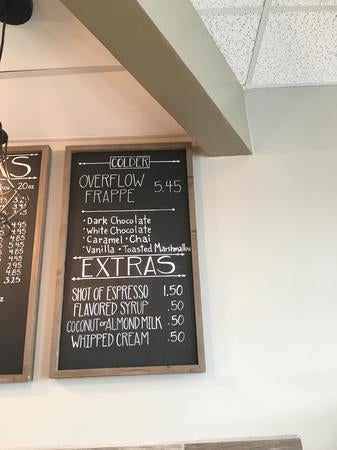 AS
20oz
3.25
3.95
4.95
4.85
4.85
4.85
4.85
4.85
3.25
COLDER
OVERFLOW 5.45
FRAPPE
• Dark Chocolate
• White Chocolate
• Caramel • Chai
• Vanilla • Toasted Marshmallow
EXTRAS
SHOT OF ESPRESSO 1.50
FLAVORED SYRUP .50
COCONUT or ALMOND MILK .50
WHIPPED CREAM .50